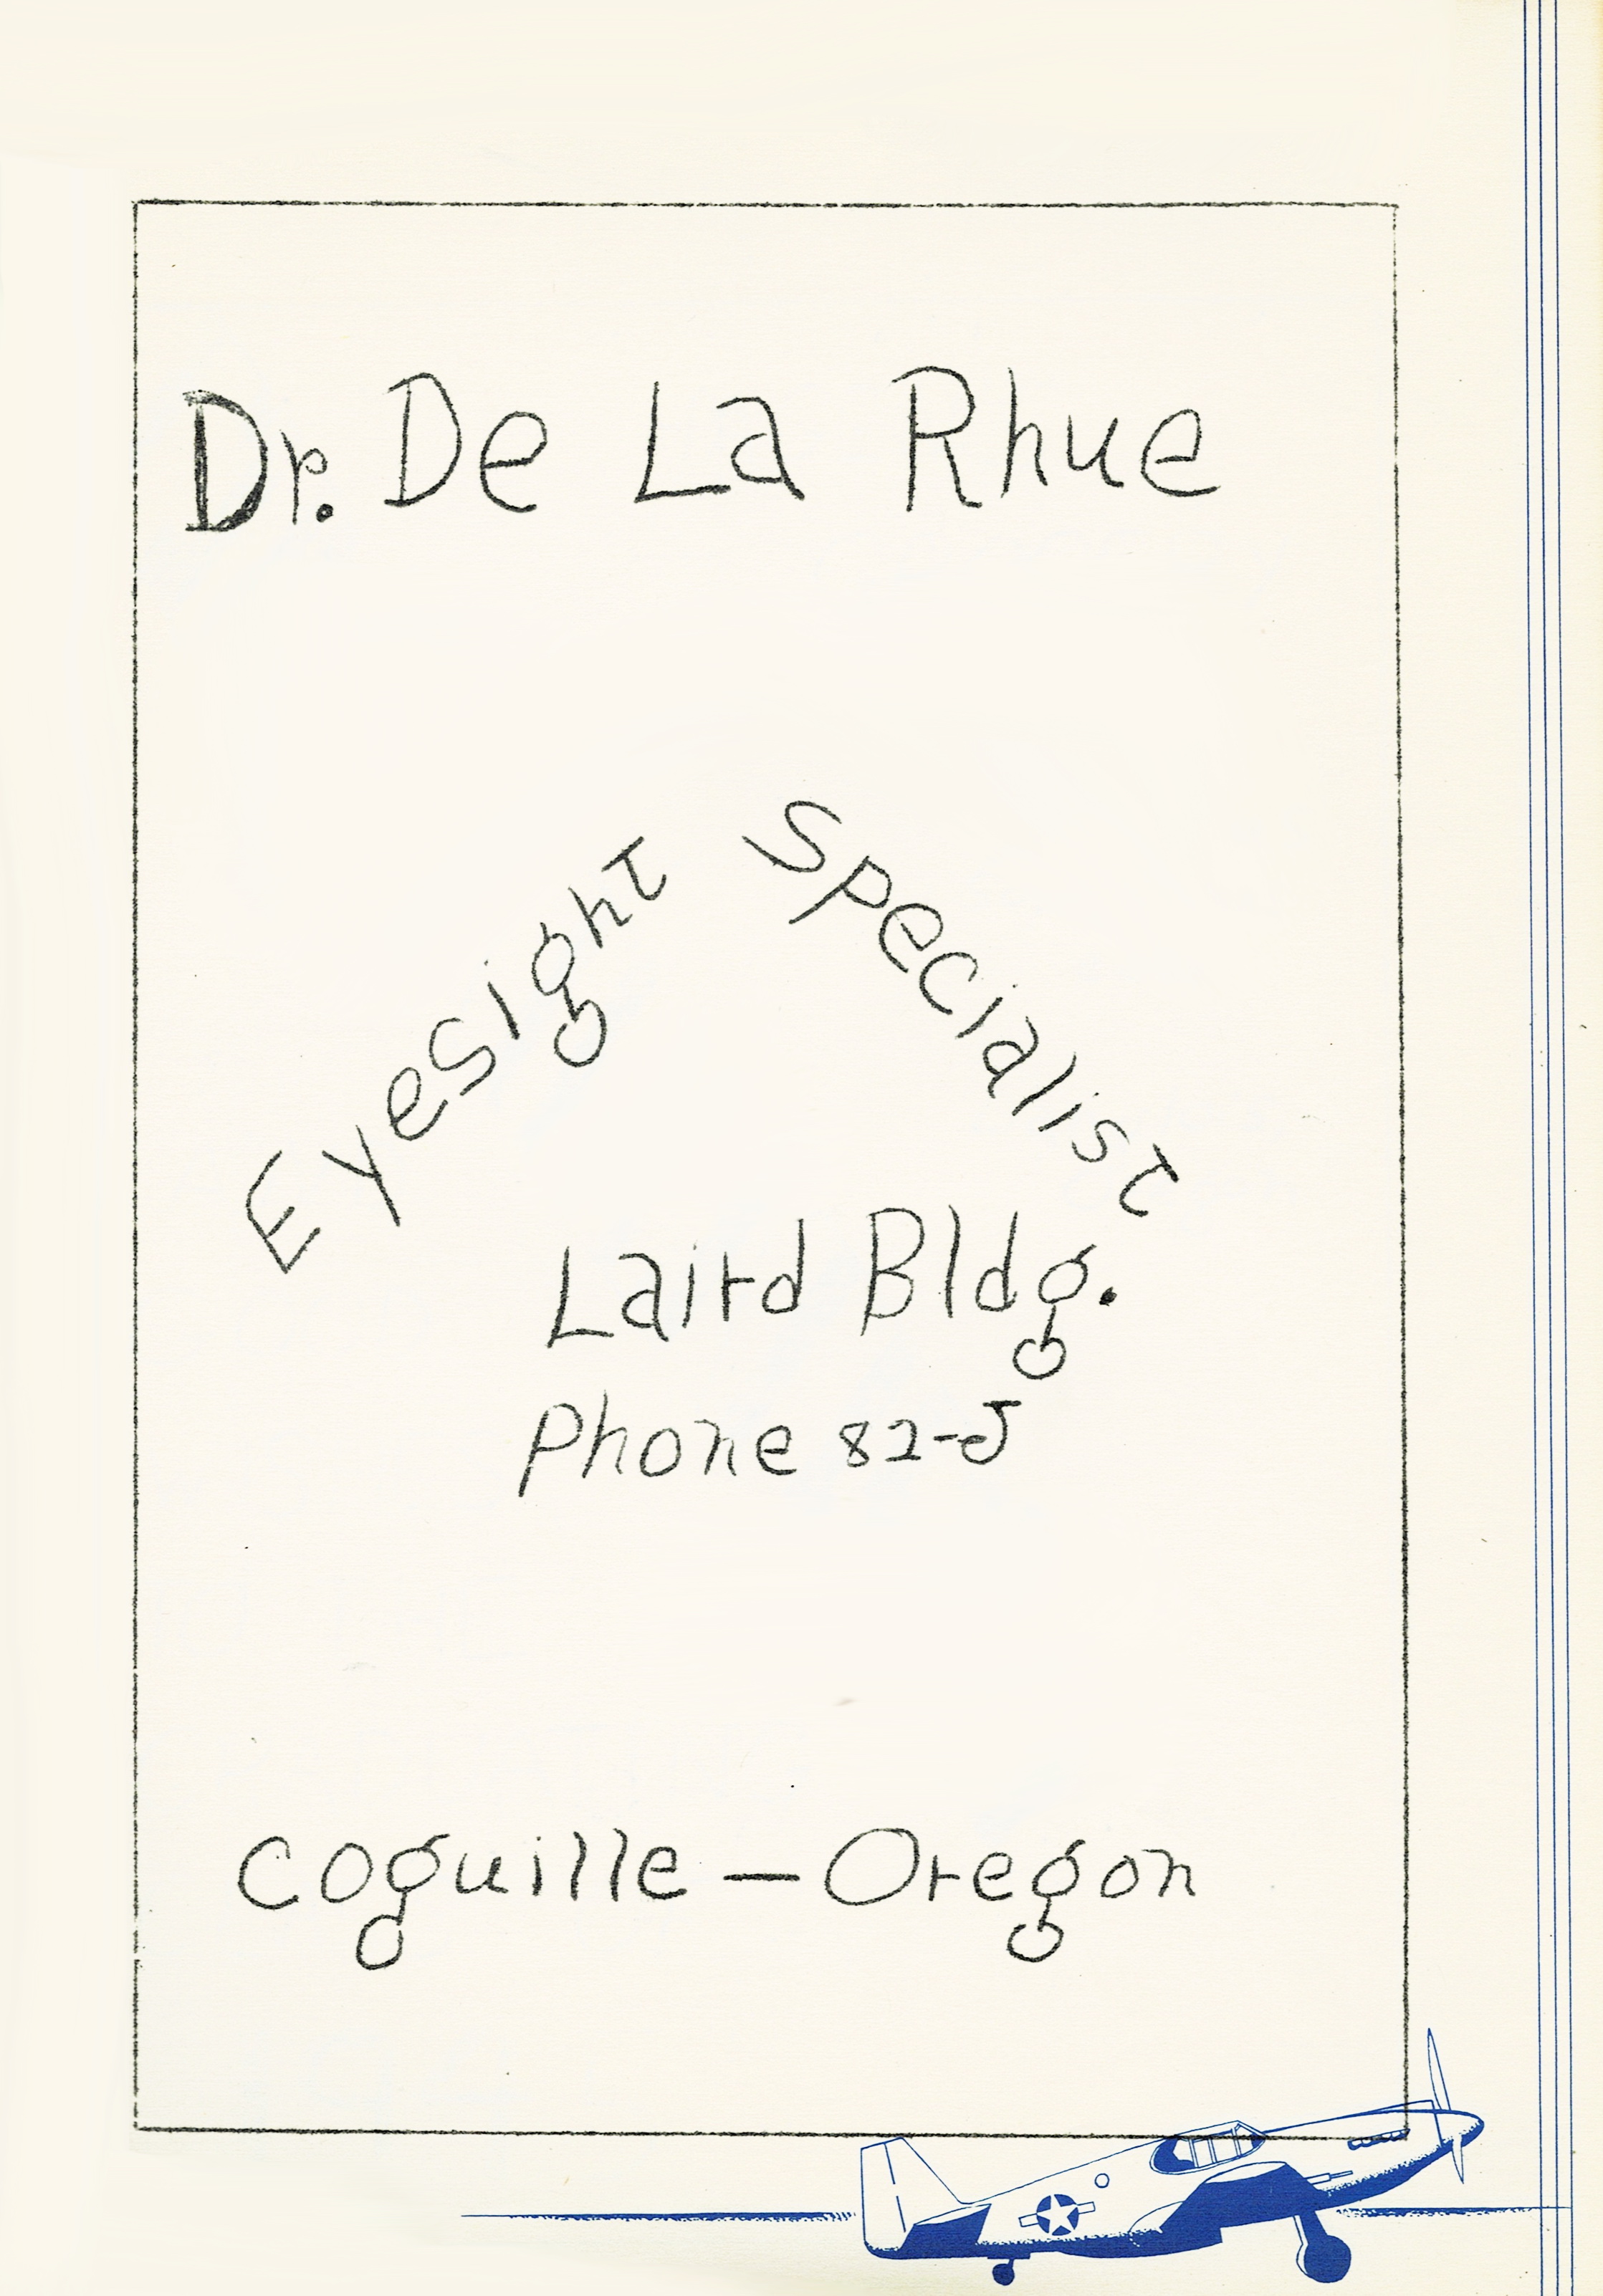 Dr. De La Rhue
Eyesight Specialist
Laird Bldg.
Phone 82-J
Coguille — Oregon